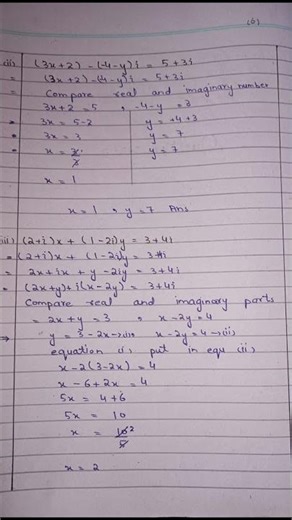 (6)
(ii) (3x+2) - (-4-y)i = 5+3i
= (3x+2) - (-4-y)i = 5+3i
= Compare real and imaginary number
3x+2 = 5 , -4-y = 3
= 3x = 5-2 y = +4+3
= 3x = 3 y = 7
= x = 3/3 y = 7
x = 1
x = 1 , y = 7 Ans
(iii) (2+i)x + (1-2i)y = 3+4i
= (2+i)x + (1-2i)y = 3+4i
= 2x+ix + y-2iy = 3+4i
= (2x+y)+i(x-2y) = 3+4i
Compare real and imaginary parts
= 2x+y = 3 , x-2y = 4
⇒ y = 3-2x→(i) x-2y = 4→(ii)
equation (i) put in equ (ii)
x-2(3-2x) = 4
x-6+2x = 4
5x = 4+6
5x = 10
x = 10 2/5
x = 2